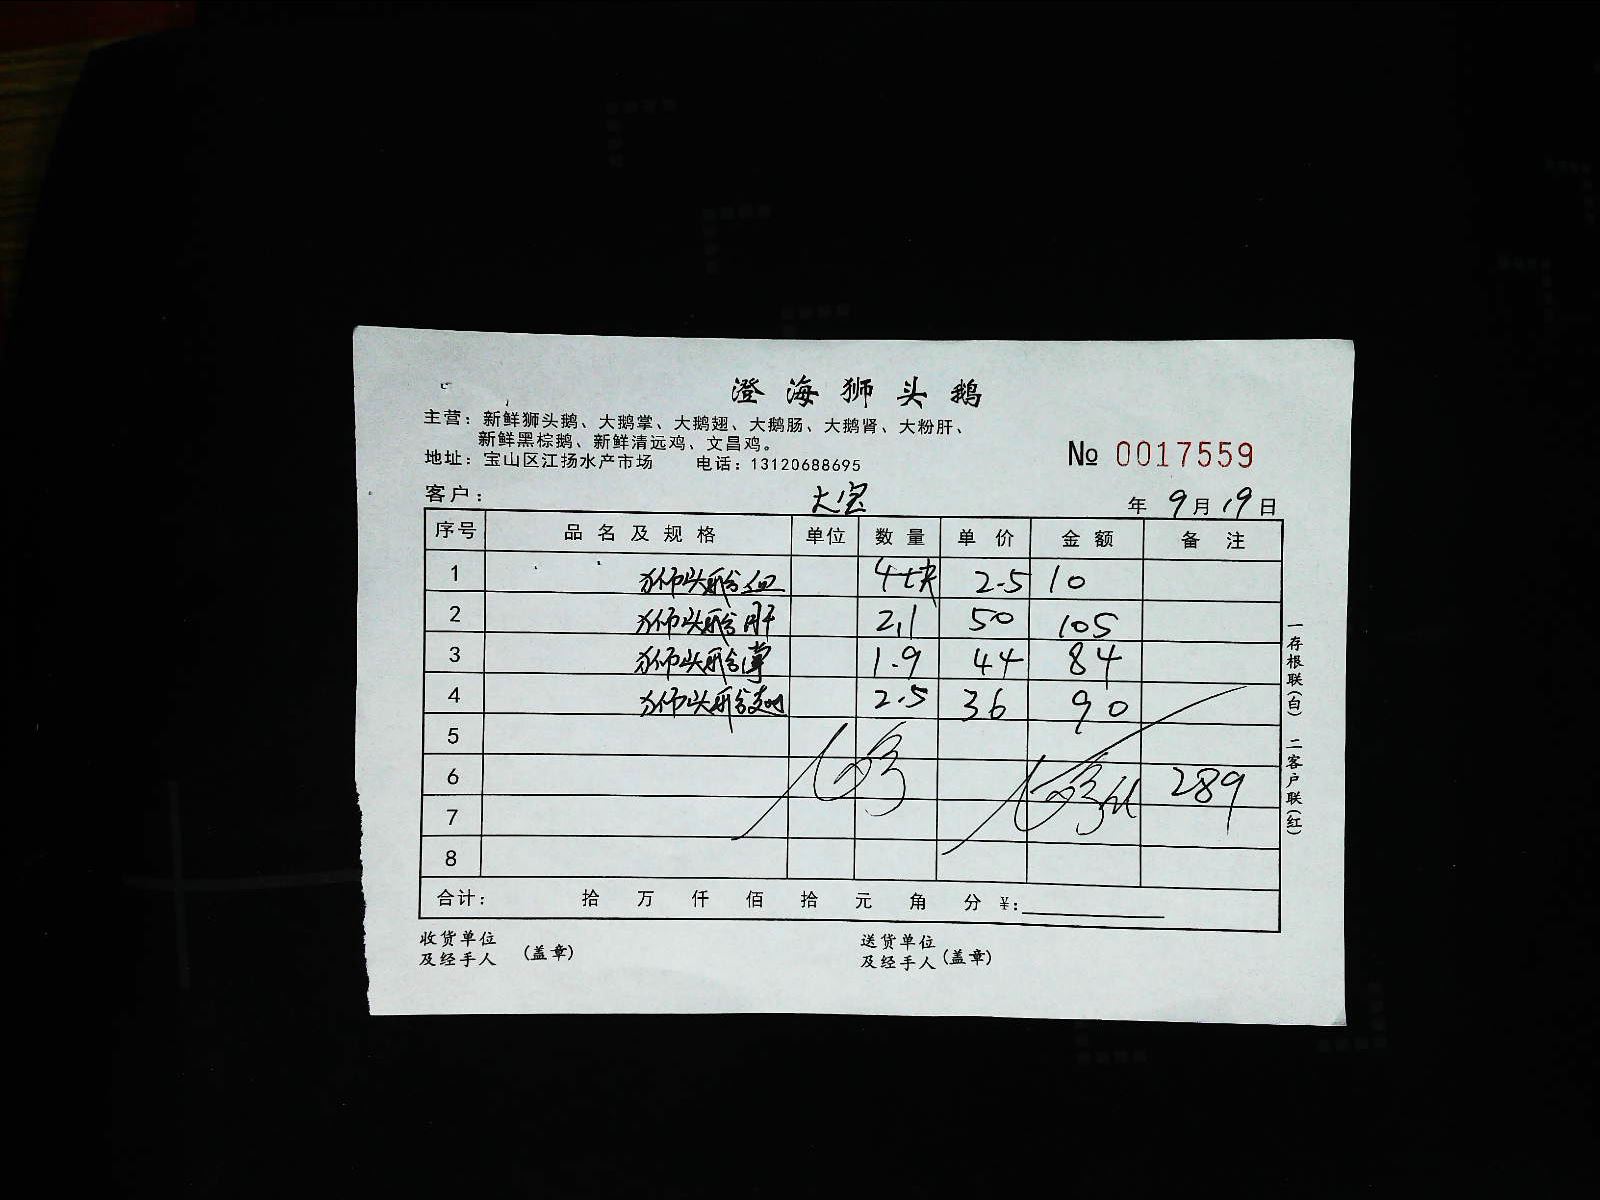 澄海狮头鹅
主营：新鲜狮头鹅、大鹅掌、大鹅翅、大鹅肠、大鹅肾、大粉肝、
新鲜黑棕鹅、新鲜清远鸡、文昌鸡。
地址：宝山区江扬水产市场 电话：13120688695
№ 0017559
客户： 大宝 年 9月19日
序号 品名及规格 单位 数量 单价 金额 备注
1 狮头鹅血 4块 2.5 10
2 狮头鹅肝 2.1 50 105
3 狮头鹅掌 1.9 44 84
4 狮头鹅翅 2.5 36 90
5
6 289
7
8
合计： 拾 万 仟 佰 拾 元 角 分 ¥：
收货单位
及经手人 (盖章)
送货单位
及经手人 (盖章)
一存根联(白) 二客户联(红)